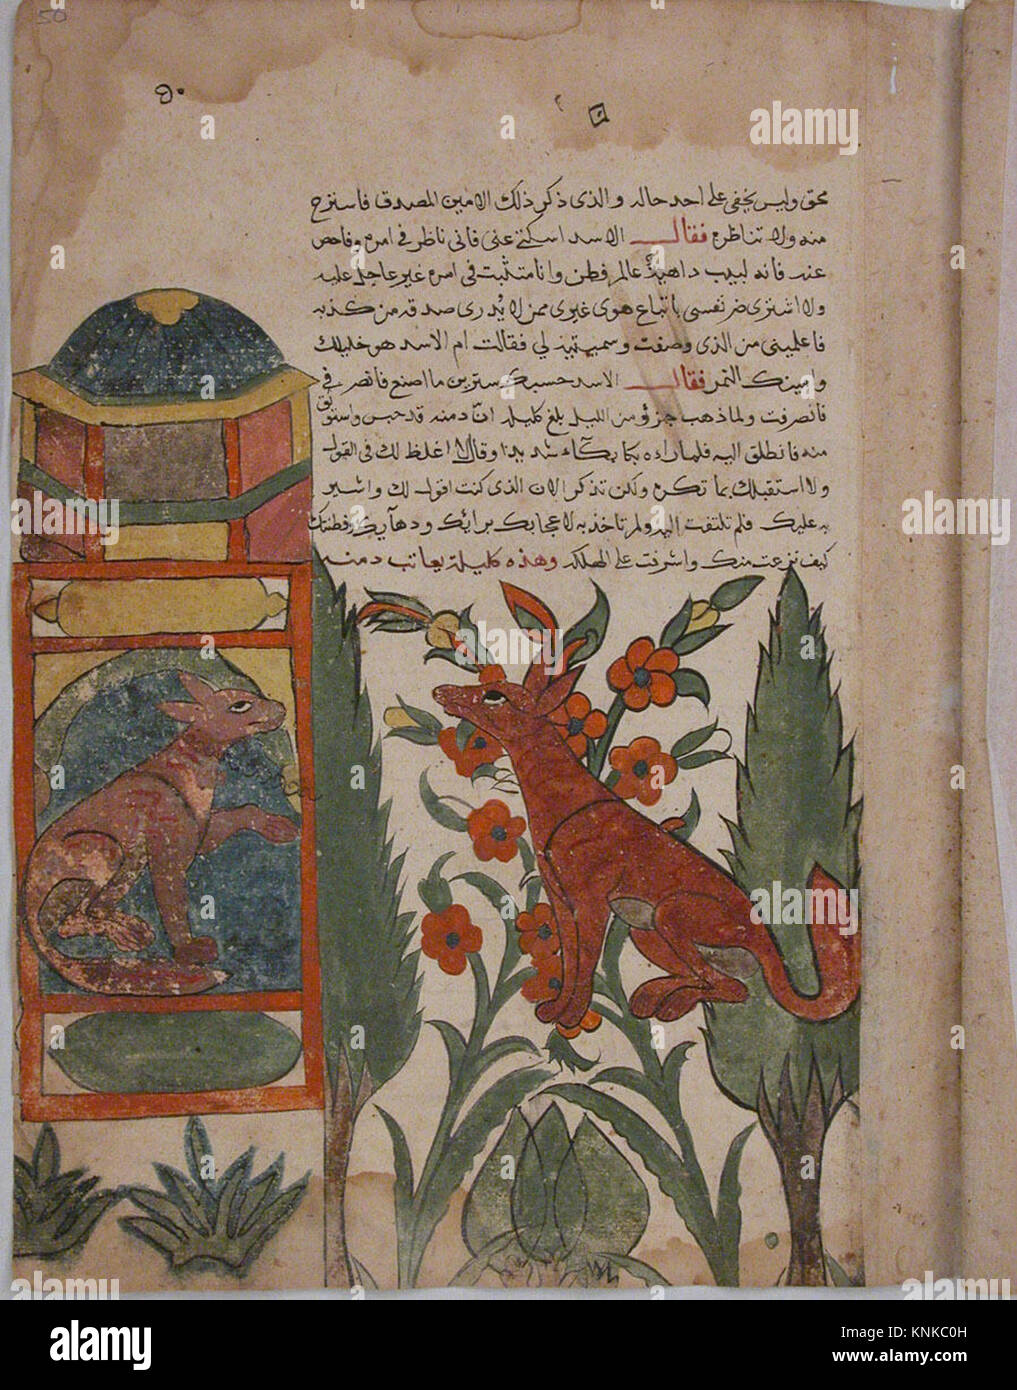 50
٥٠
محق وليس يخفى على احد حاله والذى ذكر ذلك الامين المصدق فاسترح
منه ولا تناظره فقال الاسد اسكتى عنى فانى ناظر فى امره وفاحص
عنه فانه لبيب داهية عالم فطن وانا متثبت فى امره غير عاجل عليه
ولا اشترى ضر نفسى باتباع هوى غيرى ممن لا يدرى صدقه من كذبه
فاعلمينى من الذى وصفت وسميتيه لي فقالت ام الاسد هو خليلك
وامينك النمر فقال الاسد حسبك سترين ما اصنع فانصرفى
فانصرفت ولما ذهب جزؤ من الليل بلغ كليله ان دمنه قد حبس واستوثق
منه فانطلق اليه فلما راه بكا بكآء شديدا وقال لا اغلظ لك فى القول
ولا استقبلك بما تكره ولكن تذكر الان الذى كنت اقول لك واشير
به عليك فلم تلتفت اليه ولم تاخذ به لاعجابك برايك ودهآيك وفطنتك
كيف نزعت منك واشرفت على الهلكه وهذه كليله يعاتب دمنه
a
alamy
alamy
Image ID: KNKC0H
www.alamy.com